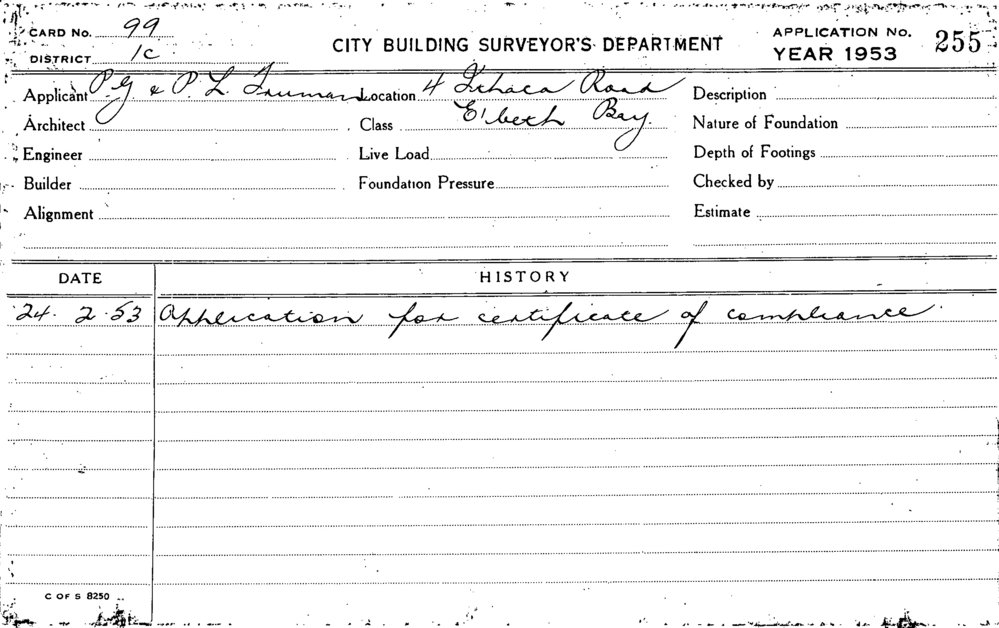 CARD No. 99
DISTRICT 1C
CITY BUILDING SURVEYOR'S DEPARTMENT
APPLICATION No. 255
YEAR 1953
Applicant P.G & P. L. Truman Location 4 Ithaca Road Description
Architect Class E'beth Bay. Nature of Foundation
Engineer Live Load Depth of Footings
Builder Foundation Pressure Checked by
Alignment Estimate
DATE HISTORY
24. 2. 53 Application for certificate of compliance.
C OF S 8250